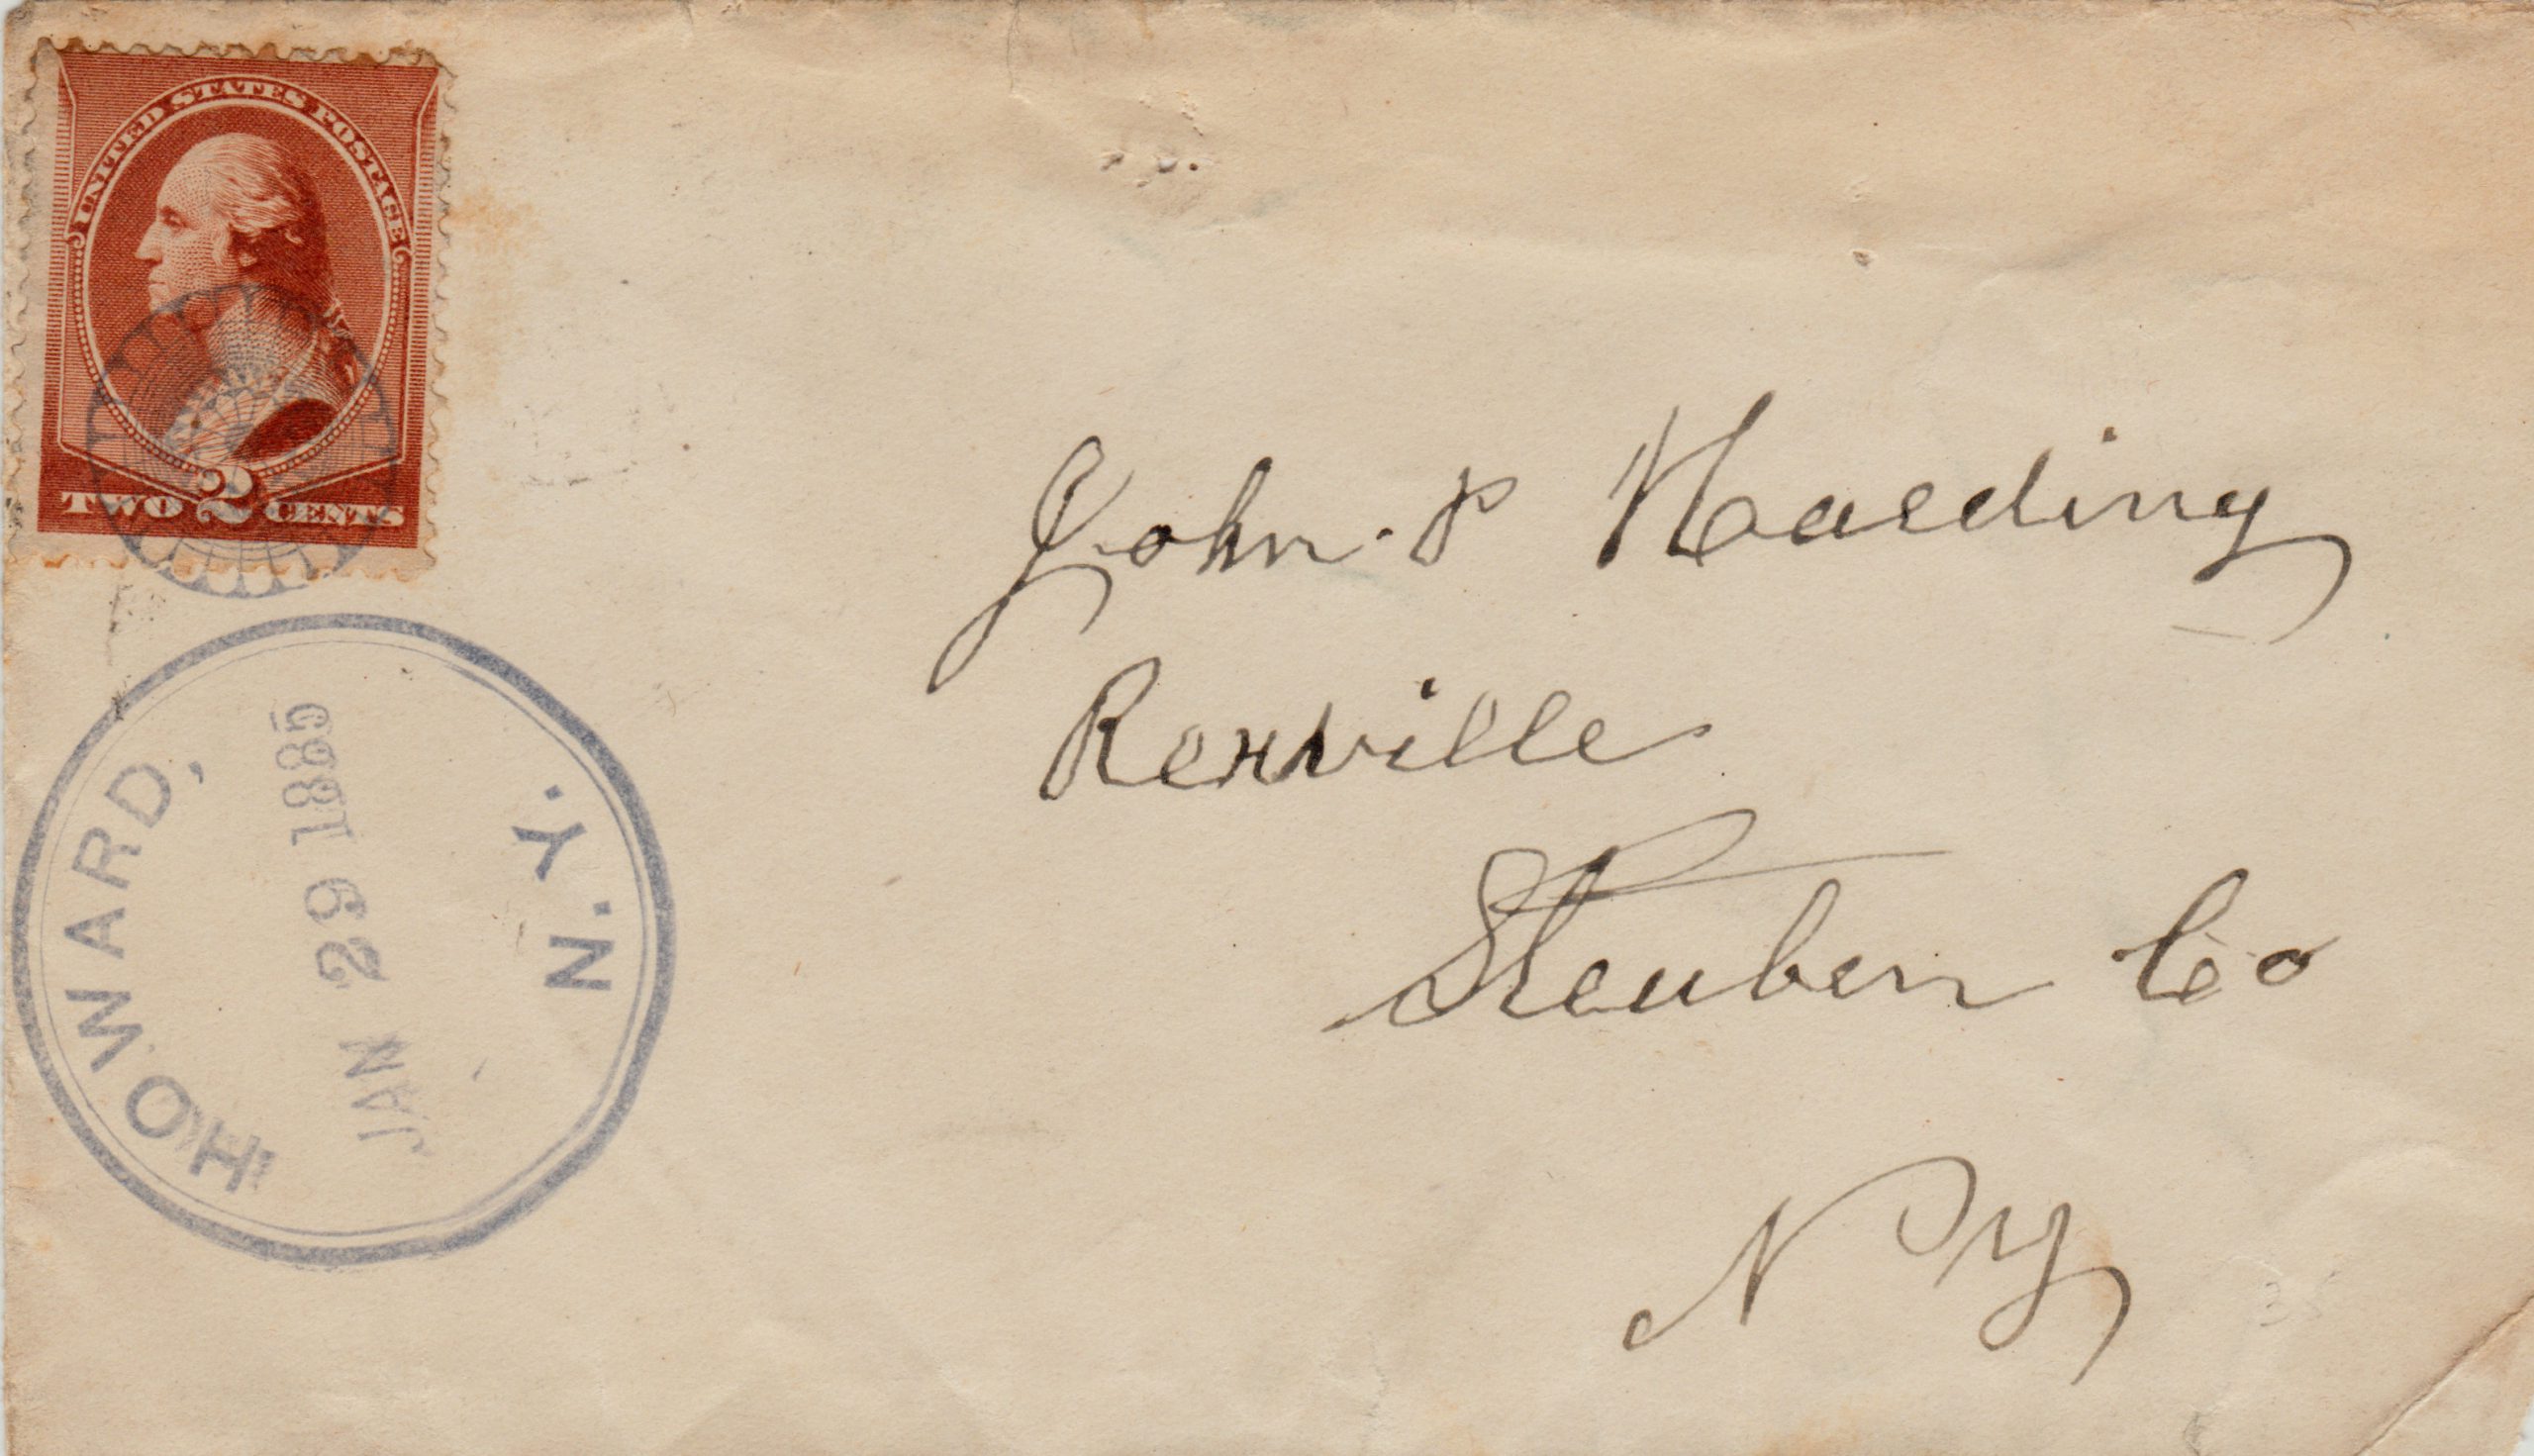 UNITED STATES POSTAGE
2
TWO CENTS
HOWARD,
JAN 29 1885
N. Y.
John. P Harding
Rexville
Steuben Co
N Y